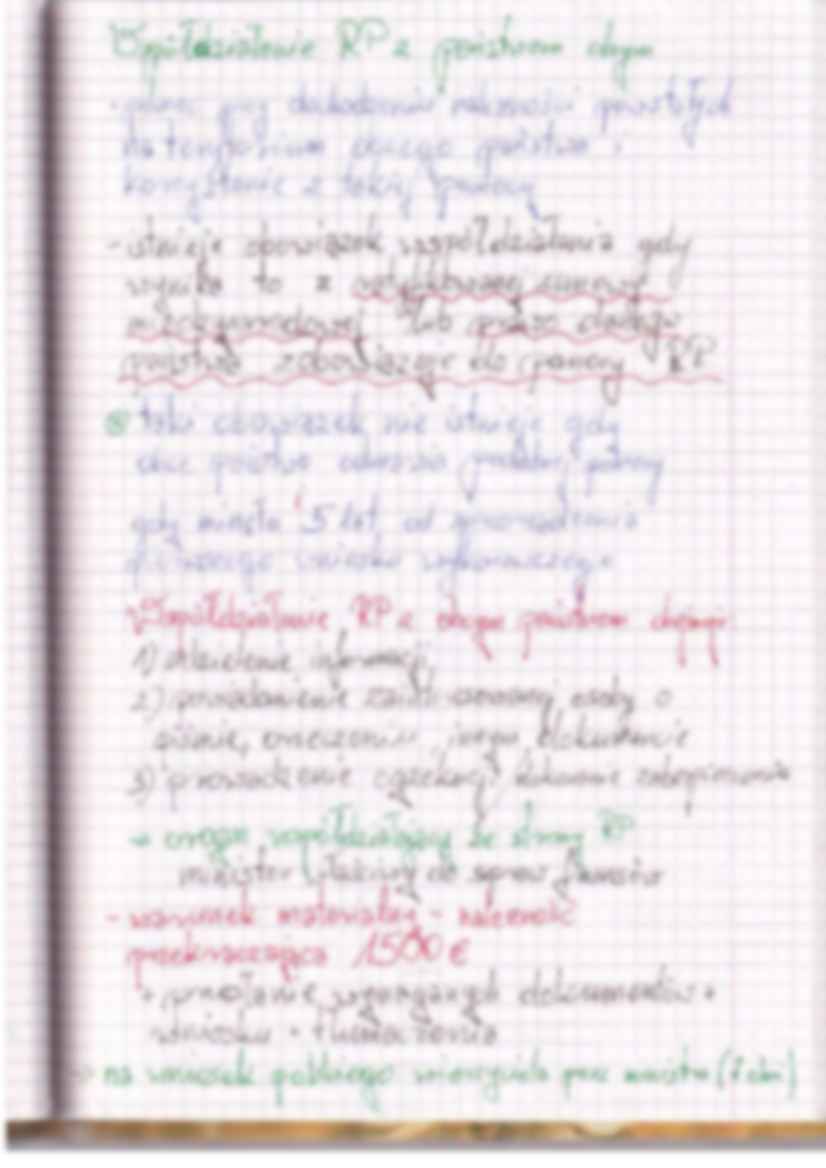 Współdziałanie RP z państwem obcym
- pomoc przy dochodzeniu należności powstałych
na terytorium obcego państwa i
korzystanie z takiej pomocy
- istnieje obowiązek współdziałania gdy
wynika to z ratyfikowanej umowy
międzynarodowej lub prawo obcego
państwa zobowiązuje do pomocy RP
taki obowiązek nie istnieje gdy
obce państwo odmawia pomocy
gdy minęło 5 lat od
wniosku wykonawczego
Współdziałanie RP z obcym państwem obejmuje
1) udzielenie informacji
2) powiadomienie zainteresowanej osoby o
piśmie, orzeczeniu, innym dokumencie
3) prowadzenie egzekucji / dokonanie zabezpieczenia
→ organ współdziałający ze strony RP
minister właściwy do spraw finansów
- warunek materialny - należność
przekraczająca 1500 €
+ przesłanie wymaganych dokumentów +
wniosku + tłumaczenia
→ na wniosek polskiego wierzyciela przez ministra